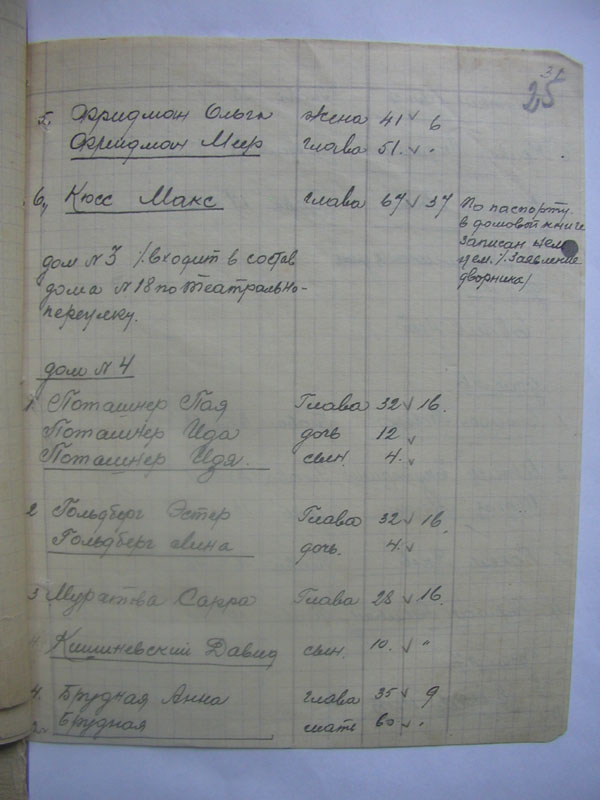 31
25
5, Фридман Ольга жена 41 ✓ 6
Фридман Меер глава 51. ✓ "
6, Кюсс Макс глава 67 ✓ 37 По паспорту
в домовой книге
записан нем
цем. /. Заявление
дворника/
дом N 3 /. входит в состав
дома N 18 по Театрально-
переулку.
дом N 4
1 Поташнер Пая Глава 32 ✓ 16.
Поташнер Ида дочь 12 ✓
Поташнер Идя. сын. 4. ✓
2 Гольдберг Эстер Глава 32 ✓ 16.
Гольдберг Лина дочь. 4. ✓
3 Муратова Сарра Глава 28 ✓ 16.
4. Кишиневский Давид сын. 10. ✓ "
4. Брудная Анна глава 35 ✓ 9
Брудная мать 60 ✓ "